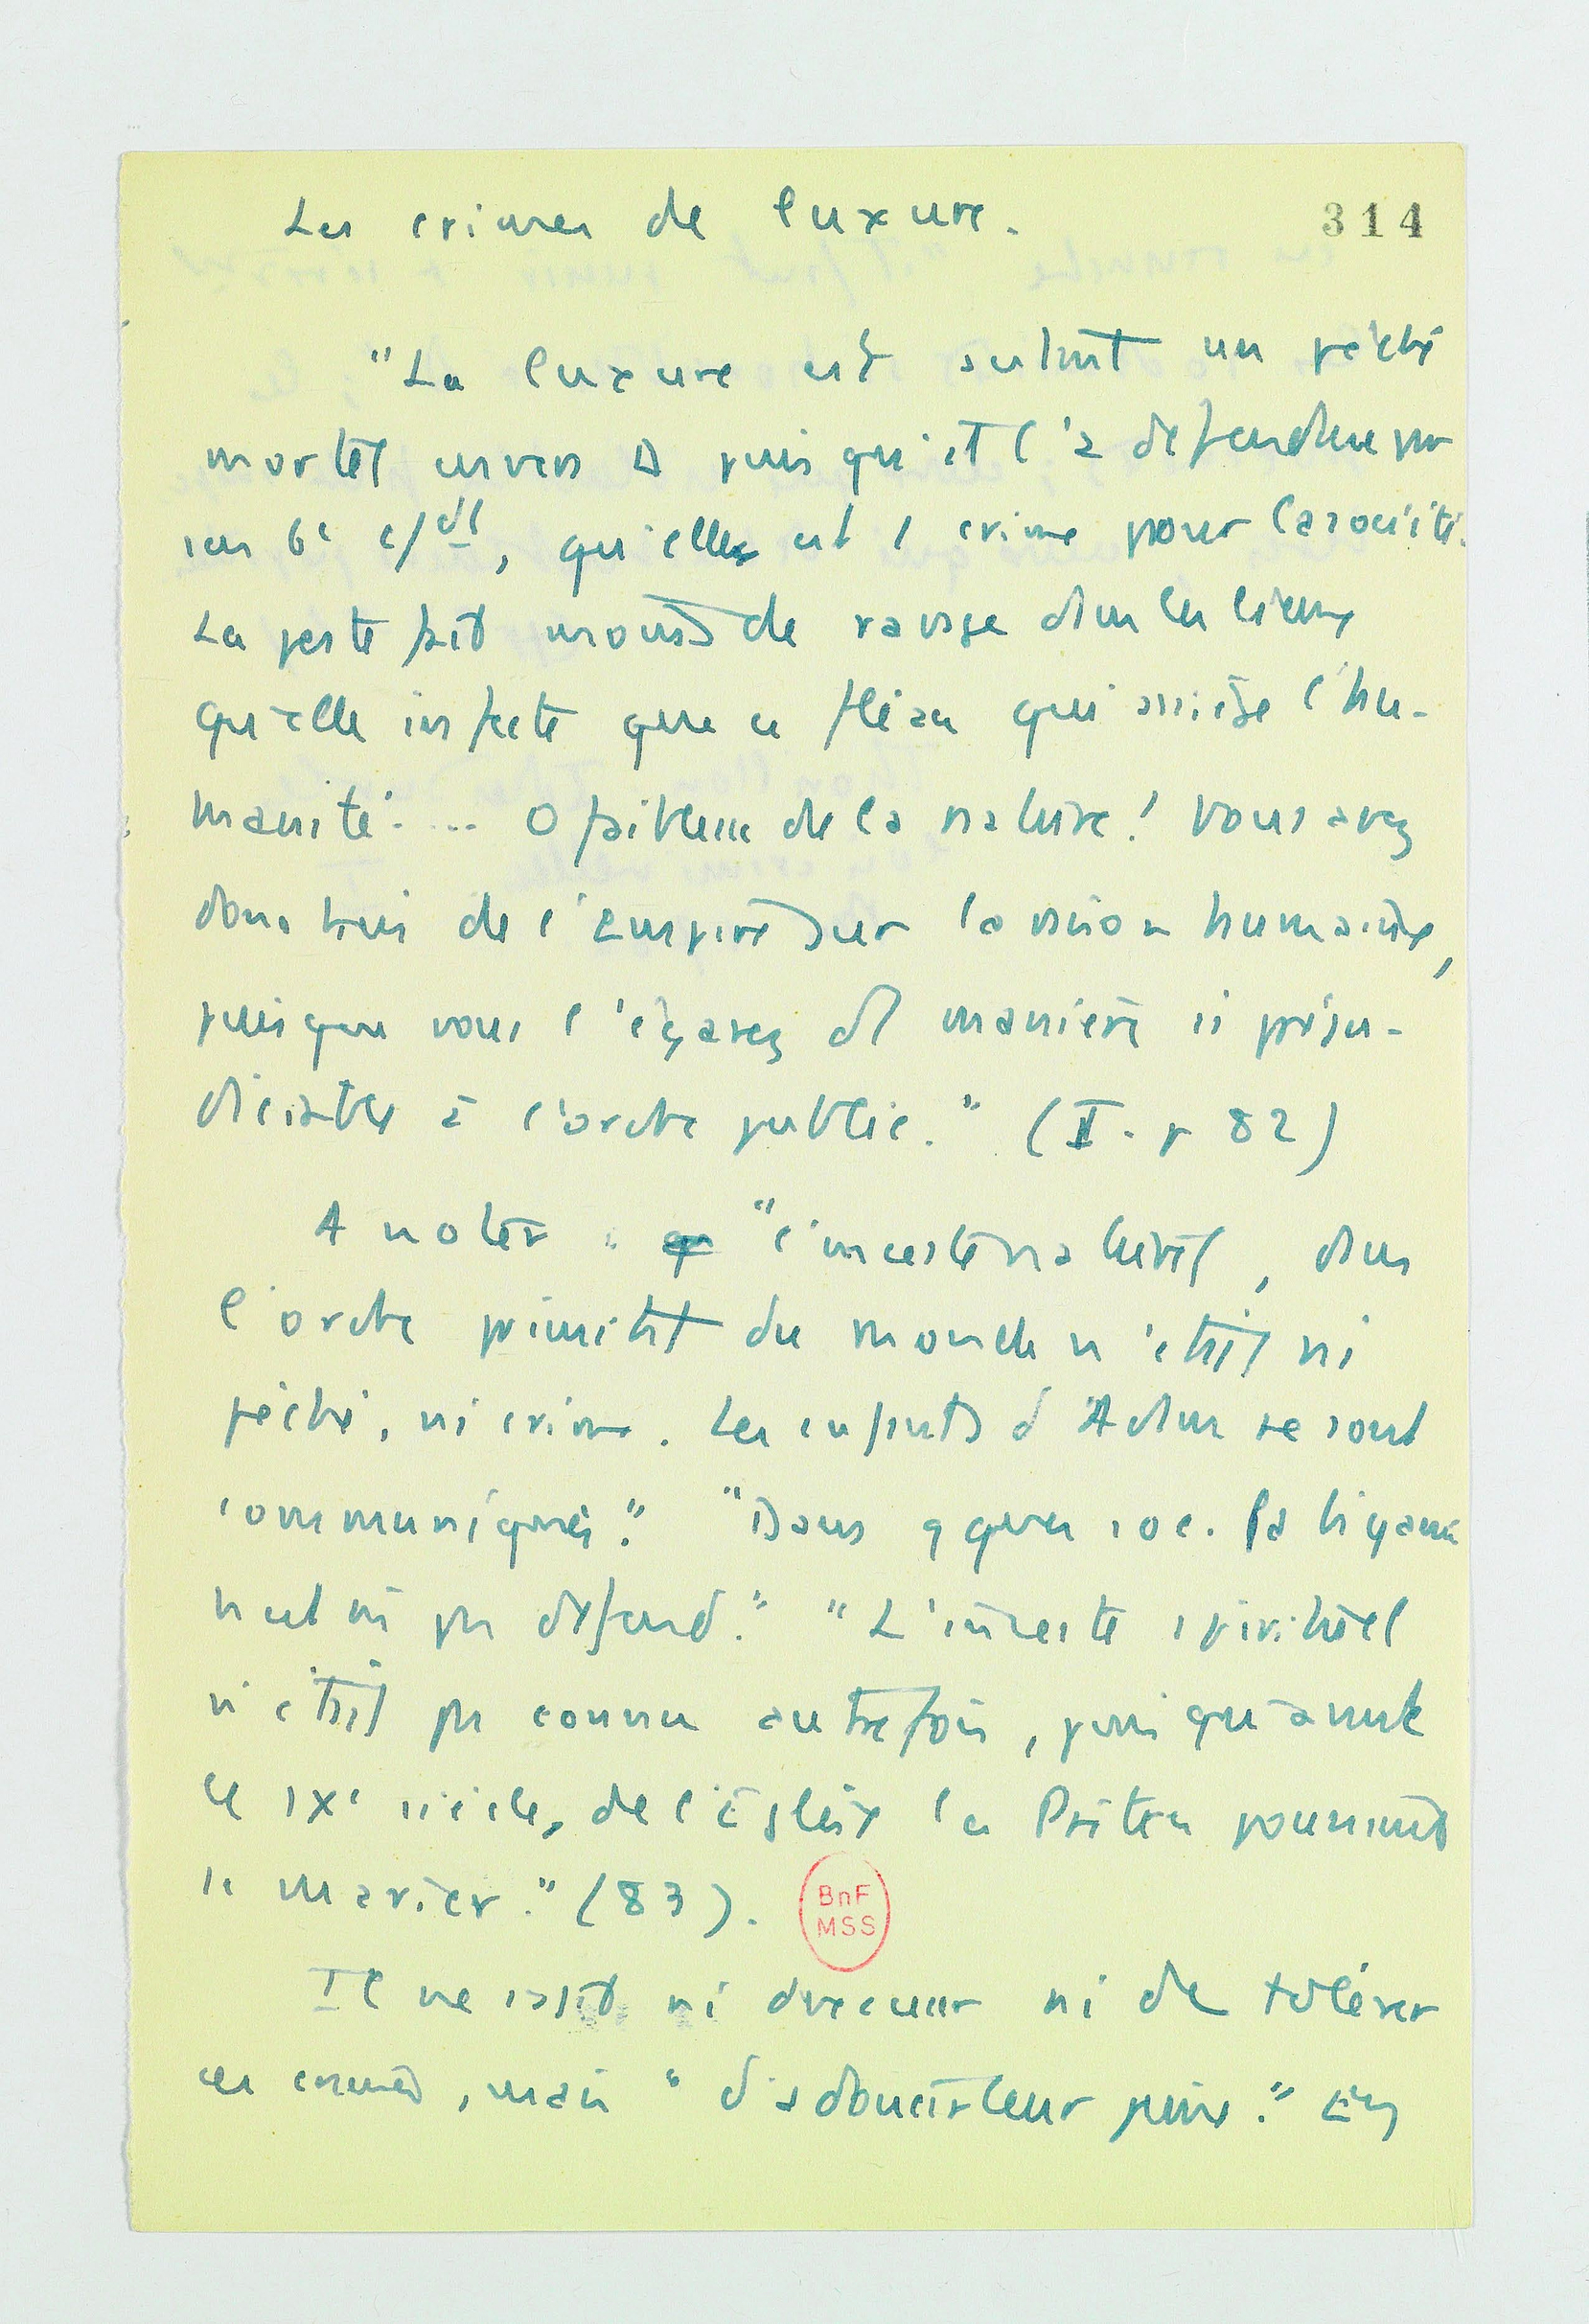 Les crimes de luxure.
314
"La luxure est autant un péché
mortel envers D puisqu'il l'a défendue par
son 6e c/dt, qu'elle est 1 crime pour la société.
La peste fait moins de ravage dans les lieux
qu'elle infecte que ce fléau qui assiège l'hu-
manité.... O faiblesse de la nature! Vous avez
donc bien de l'Empire sur la raison humaine,
puisque vous l'égarez d'1 manière si préju-
diciable à l'ordre public." (II. p 82)
A noter : "l'inceste naturel, dans
l'ordre primitif du monde n'était ni
péché, ni crime. Les enfants d'Adam se sont
communiqués." "Dans qques soc. la bigamie
n'est pas défend." "L'inceste spirituel
n'était pas connu autrefois, puisqu'avant
le IXe siècle, de l'Église les Prêtres pouvaient
se marier." (83).
BnF
MSS
Il ne s'agit ni d'excuser ni de tolérer
ces crimes, mais "d'adoucir leur peine." En